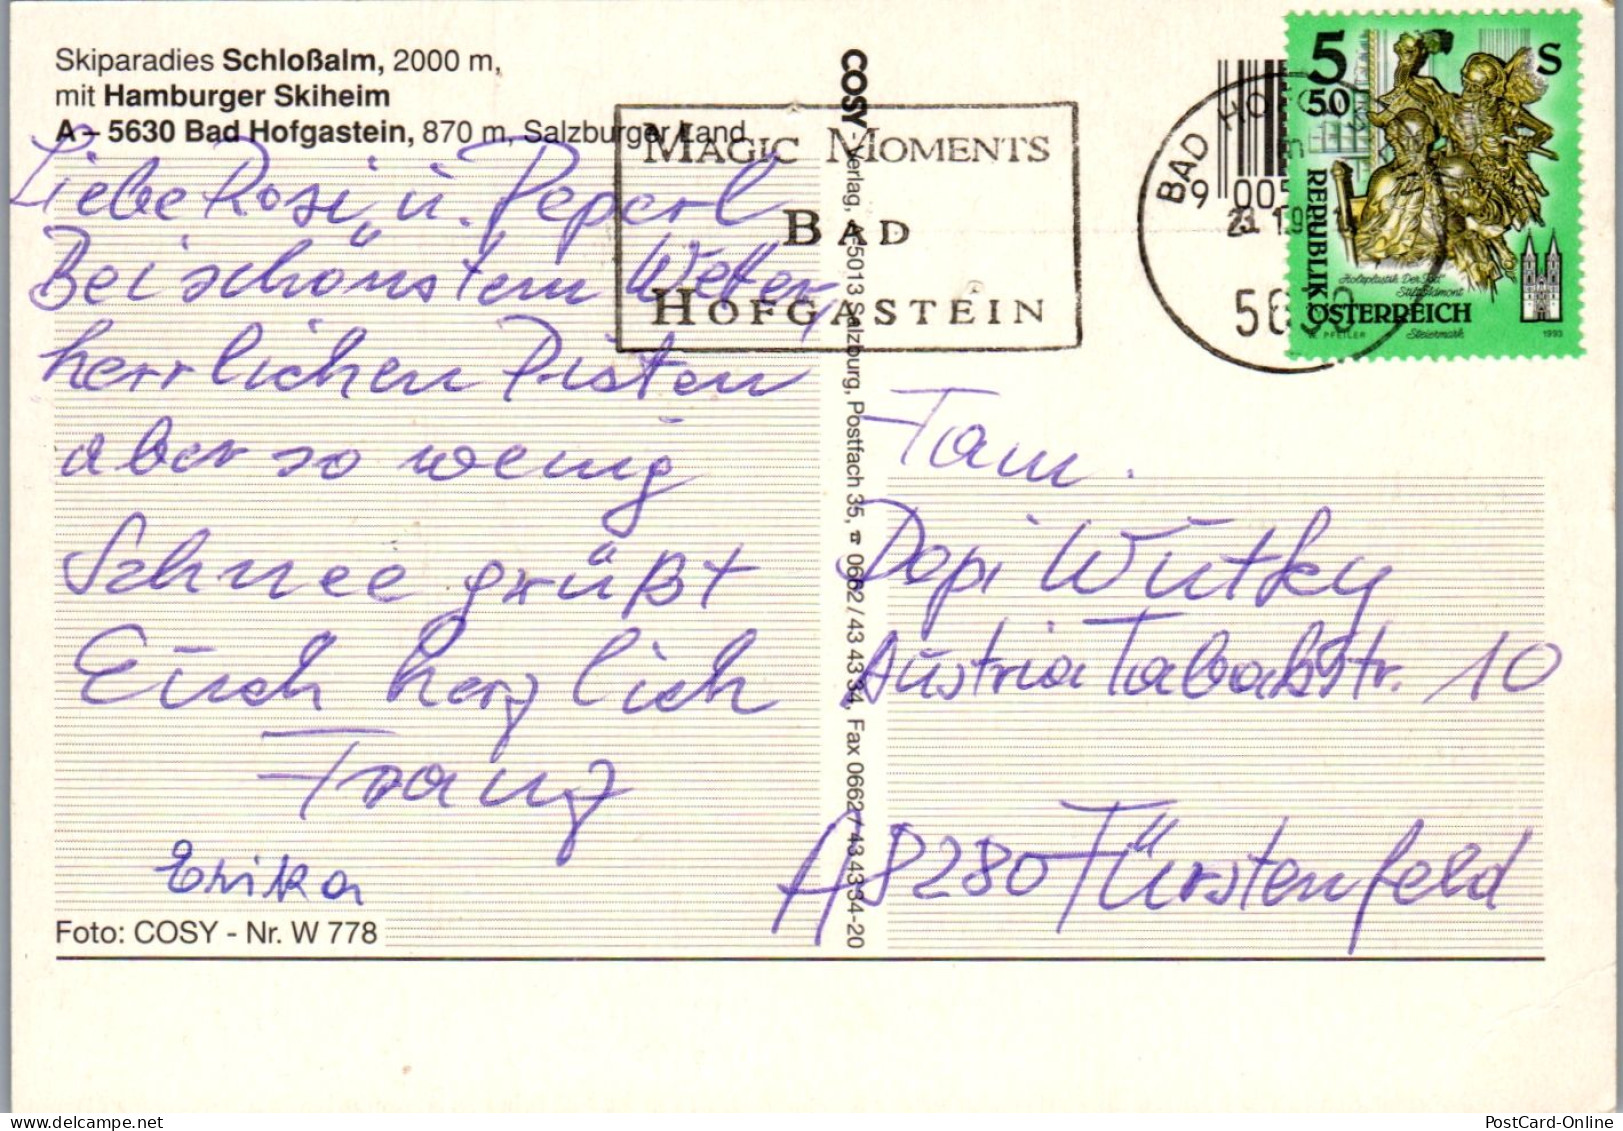 Skiparadies Schloßalm, 2000 m,
mit Hamburger Skiheim
A – 5630 Bad Hofgastein, 870 m, Salzburger Land
Liebe Rosi u. Peperl
Bei schönstem Wetter,
herrlichen Pisten
aber so wenig
Schnee grüßt
Euch herzlich
Franz
Erika
Foto: COSY - Nr. W 778
COSY - Verlag, A-5013 Salzburg, Postfach 35, ☎ 0662 / 43 43 34, Fax 0662 / 43 43 34-20
MAGIC MOMENTS
BAD
HOFGASTEIN
BAD HO
9 005
5630
5 S
50
REPUBLIK
ÖSTERREICH
Holzplastik Der Tod
Stift Admont
Steiermark
PFEILER
1993
Fam.
Popi Wutky
Austria Tabakstr. 10
A 8280 Fürstenfeld
PostCard-Online